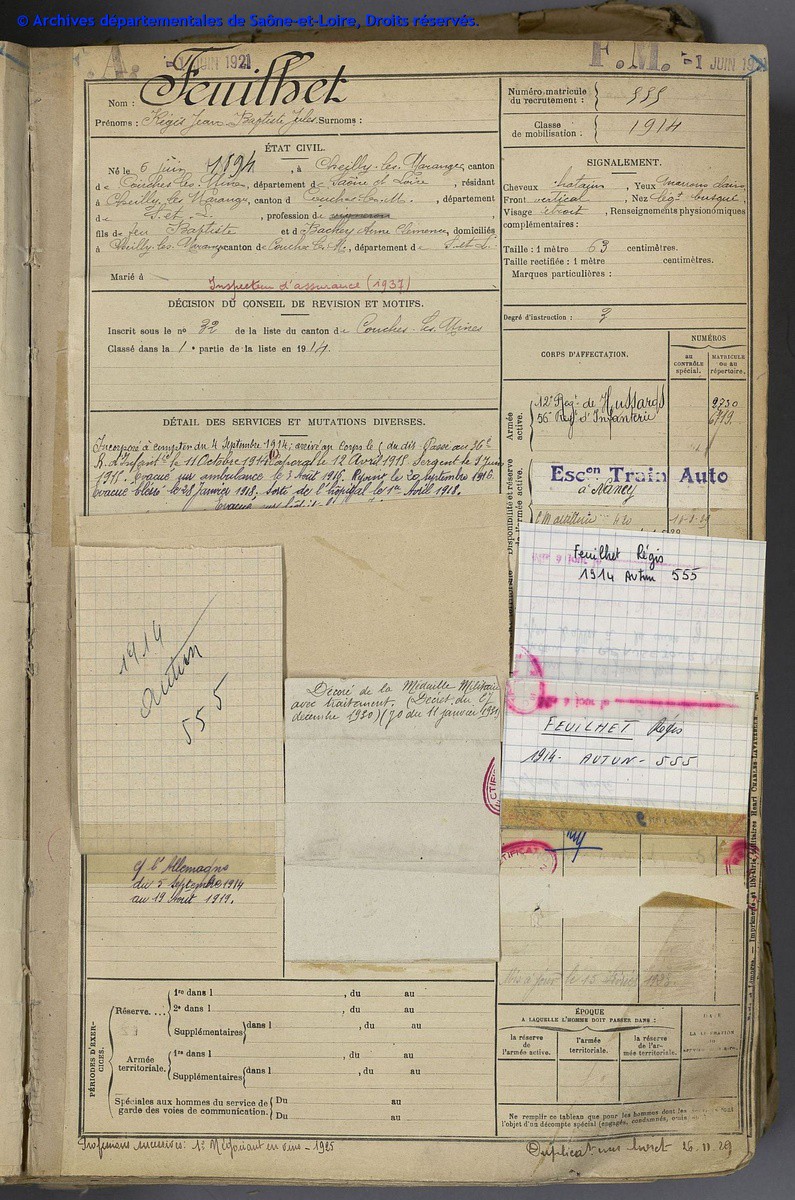 © Archives départementales de Saône-et-Loire, Droits réservés.
A. -1 JUIN 1921
F.M. -1 JUIN
Nom : Feuilhet
Prénoms : Régis Jean Baptiste Jules Surnoms :
ÉTAT CIVIL.
Né le 6 juin 1894, à Cheilly-les-Maranges, canton
de Couches-les-Mines, département de Saône et Loire, résidant
à Cheilly les Maranges, canton d Couches-les-M., département
de S. et L., profession de
fils de feu Baptiste et d Bachey Anne Clémence, domiciliés
à Cheilly-les-Maranges canton de Couches les M., département de S. et L.
Marié à
Inspecteur d'assurance (1937)
DÉCISION DU CONSEIL DE REVISION ET MOTIFS.
Inscrit sous le no 32 de la liste du canton de Couches-les-Mines
Classé dans la 1e partie de la liste en 1914.
DÉTAIL DES SERVICES ET MUTATIONS DIVERSES.
Incorporé à compter du 4 Septembre 1914; arrivé au Corps le 5 du dit. Passé au 56e
R. d'Infanterie le 11 Octobre 1914. Caporal le 12 Avril 1915. Sergent le 1 Juin
1915. Evacué sur ambulance le 3 Août 1916. Rejoint le 20 septembre 1916.
Evacué blessé le 28 Janvier 1918. Sorti de l'hôpital le 1er Avril 1918.
Numéro matricule
du recrutement : 555
Classe
de mobilisation : 1914
SIGNALEMENT.
Cheveux chatains, Yeux marrons clairs,
Front vertical, Nez légt busqué,
Visage étroit, Renseignements physionomiques
complémentaires :
Taille : 1 mètre 63 centimètres.
Taille rectifiée : 1 mètre centimètres.
Marques particulières :
Degré d'instruction : 3
CORPS D'AFFECTATION.
NUMÉROS
au
contrôle
spécial.
MATRICULE
ou au
répertoire.
Armée
active.
12e Regt de Hussards 2730
56e Regt d'Infanterie 6719
Disponibilité et réserve
de l'armée active.
Escon Train Auto
à Nancy
Feuilhet Régis
1914 Autun 555
FEUILHET Régis
1914 - AUTUN - 555
1914
Autun
555
Décoré de la Médaille Militaire
avec traitement. (Décret du
décembre 1930) (JO du 11 janvier 1931)
cf l'Allemagne
du 5 Septembre 1914
au 19 Août 1919.
Mis à jour le 15
PÉRIODES D'EXERCICES.
Réserve....
1re dans l , du au
2e dans l , du au
Supplémentaires dans l , du au
Armée
territoriale.
1re dans l , du au
Supplémentaires dans l , du au
Spéciales aux hommes du service de
garde des voies de communication.
Du au
Du au
ÉPOQUE
A LAQUELLE L'HOMME DOIT PASSER DANS :
la réserve
de
l'armée active.
l'armée
territoriale.
la réserve
de l'ar-
mée territoriale.
Ne remplir ce tableau que pour les hommes dont
l'objet d'un décompte spécial (engagés, condamnés,
Professions successives : 1° Négociant en vins - 1925
Duplicata livret 26.11.29